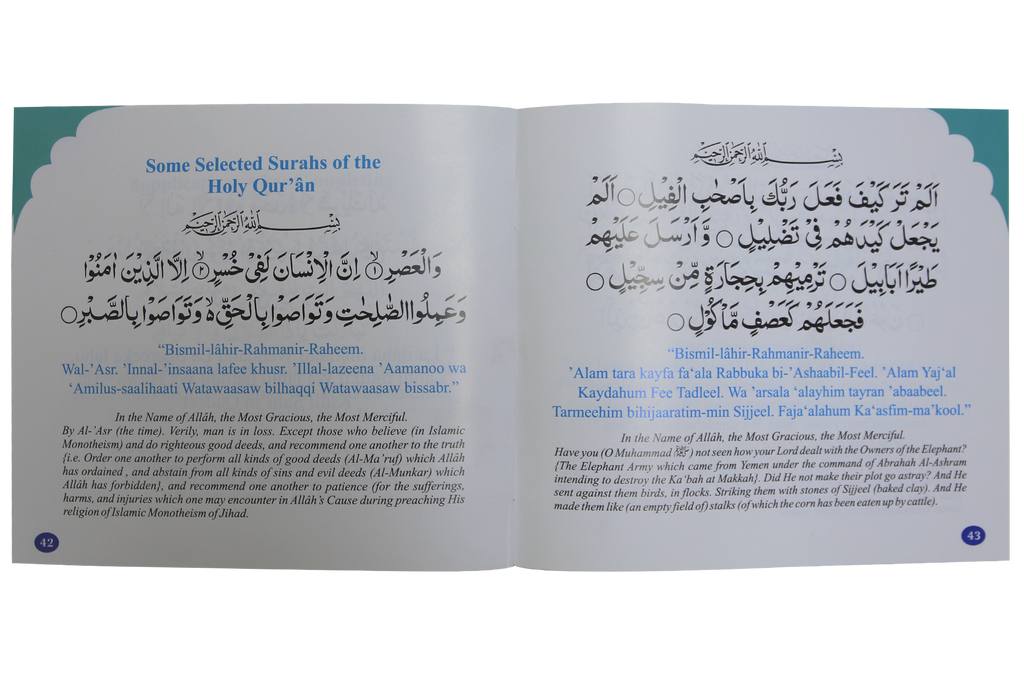 Some Selected Surahs of the
Holy Qur’ân
بِسْمِ اللهِ الرَّحْمٰنِ الرَّحِيْمِ
وَالْعَصْرِ ۙ۝۱ اِنَّ الْاِنْسَانَ لَفِیْ خُسْرٍ ۙ۝۲ اِلَّا الَّذِیْنَ اٰمَنُوْا
وَعَمِلُوا الصّٰلِحٰتِ وَتَوَاصَوْا بِالْحَقِّ ۙ۬ وَتَوَاصَوْا بِالصَّبْرِ ۝
“Bismil-lâhir-Rahmanir-Raheem.
Wal-’Asr. ’Innal-’insaana lafee khusr. ’Illal-lazeena ’Aamanoo wa
‘Amilus-saalihaati Watawaasaw bilhaqqi Watawaasaw bissabr.”
In the Name of Allâh, the Most Gracious, the Most Merciful.
By Al-’Asr (the time). Verily, man is in loss. Except those who believe (in Islamic
Monotheism) and do righteous good deeds, and recommend one another to the truth
{i.e. Order one another to perform all kinds of good deeds (Al-Ma’ruf) which Allâh
has ordained , and abstain from all kinds of sins and evil deeds (Al-Munkar) which
Allâh has forbidden}, and recommend one another to patience (for the sufferings,
harms, and injuries which one may encounter in Allâh’s Cause during preaching His
religion of Islamic Monotheism of Jihad.
42
بِسْمِ اللهِ الرَّحْمٰنِ الرَّحِيْمِ
اَلَمْ تَرَ كَيْفَ فَعَلَ رَبُّكَ بِاَصْحٰبِ الْفِيْلِ ۝ اَلَمْ
يَجْعَلْ كَيْدَهُمْ فِیْ تَضْلِيْلٍ ۝ وَّاَرْسَلَ عَلَيْهِمْ
طَيْرًا اَبَابِيْلَ ۝ تَرْمِيْهِمْ بِحِجَارَةٍ مِّنْ سِجِّيْلٍ ۝
فَجَعَلَهُمْ كَعَصْفٍ مَّاْكُوْلٍ ۝
“Bismil-lâhir-Rahmanir-Raheem.
’Alam tara kayfa fa‘ala Rabbuka bi-’Ashaabil-Feel. ’Alam Yaj‘al
Kaydahum Fee Tadleel. Wa ’arsala ‘alayhim tayran ’abaabeel.
Tarmeehim bihijaaratim-min Sijjeel. Faja‘alahum Ka‘asfim-ma’kool.”
In the Name of Allâh, the Most Gracious, the Most Merciful.
Have you (O Muhammad ﷺ) not seen how your Lord dealt with the Owners of the Elephant?
{The Elephant Army which came from Yemen under the command of Abrahah Al-Ashram
intending to destroy the Ka‘bah at Makkah}. Did He not make their plot go astray? And He
sent against them birds, in flocks. Striking them with stones of Sijjeel (baked clay). And He
made them like (an empty field of) stalks (of which the corn has been eaten up by cattle).
43